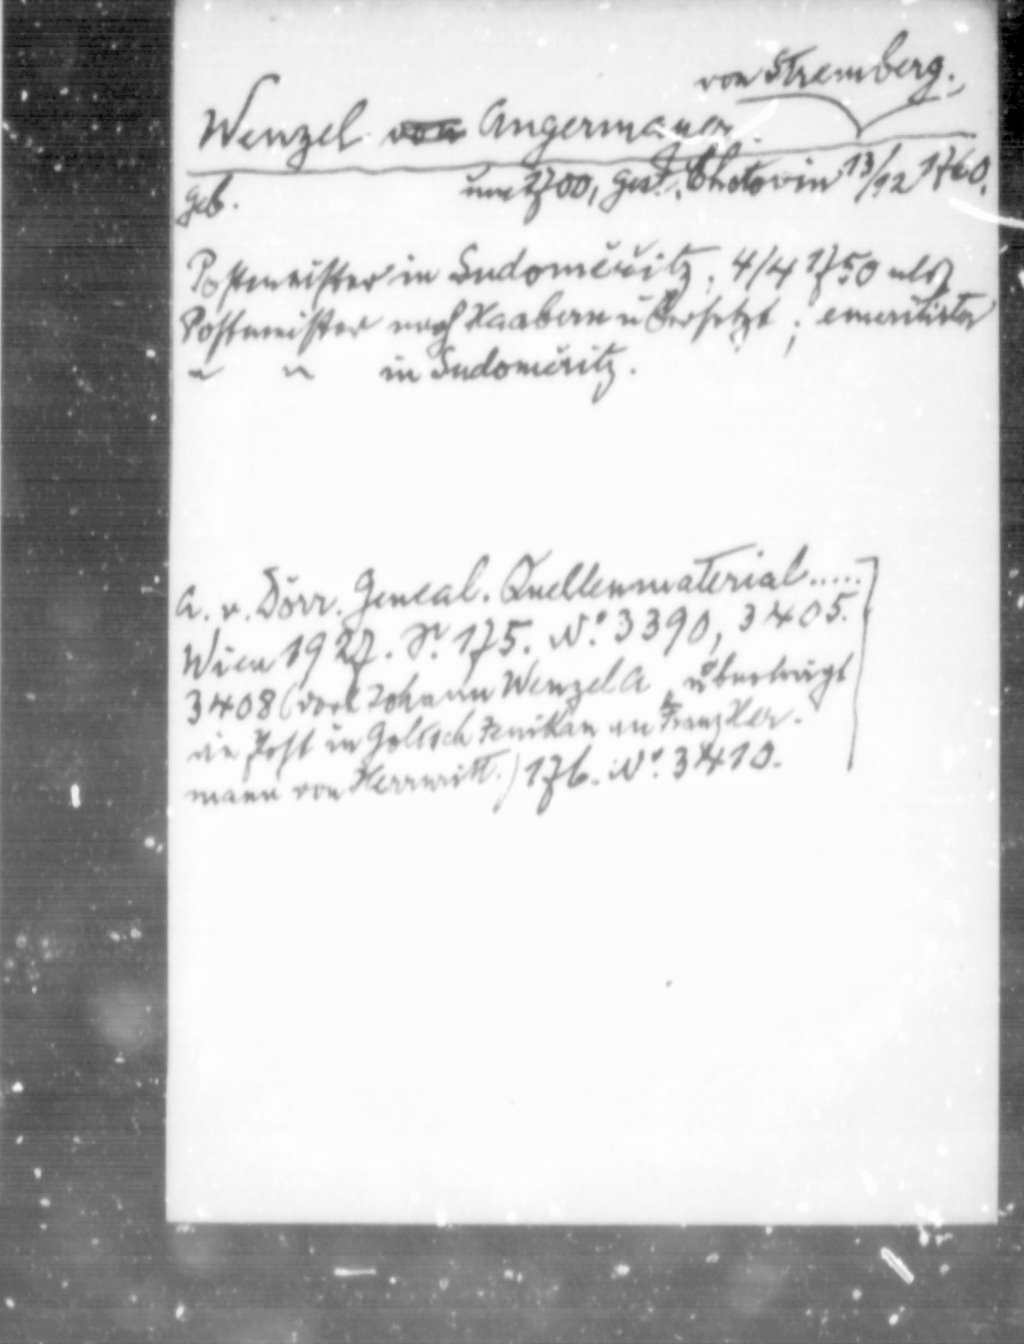 von Stremberg.
Wenzel von Angermayer.
geb. um 1700, gest. Chotovin 13/12 1760.
Postmeister in Sudoměřitz; 4/4 1750 als
Postmeister nach Haabern übersetzt; emeritirter
" " in Sudoměřitz.
A. v. Dörr. Geneal. Quellenmaterial.....
Wien 1927. S. 175. No. 3390, 3405.
3408 (von Johann Wenzel A überträgt
die Post in Goltsch Jenikau an Franz Her-
mann von Herrnritt.) 176. No. 3410.